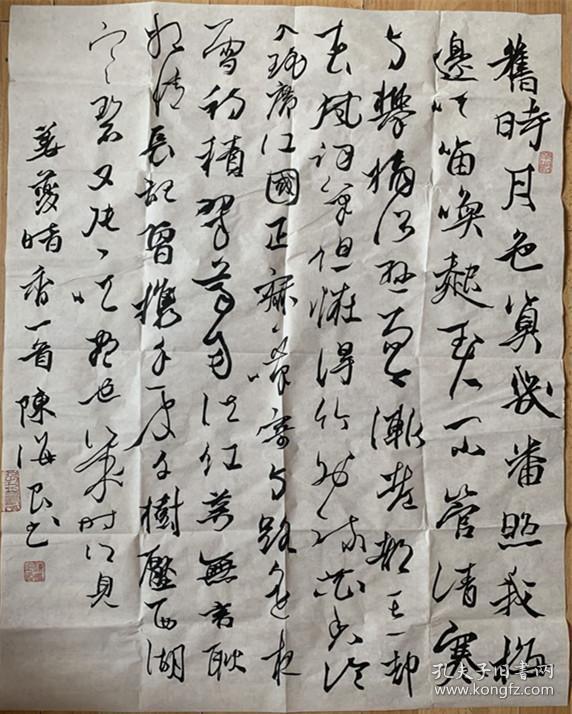 舊時月色算幾番照我梅
邊吹笛喚起玉人不管清寒
与攀摘何遜而今漸老都忘却
春風詞筆但怪得竹外疏花香冷
入瑶席江國正寂寂嘆寄与路遥夜
雪初積翠尊易泣红萼無言耿
相憶長記曾攜手處千樹壓西湖
寒碧又片片吹盡也幾时得見
姜夔暗香一首 陳海良书
孔夫子旧书网
www.kongfz.com